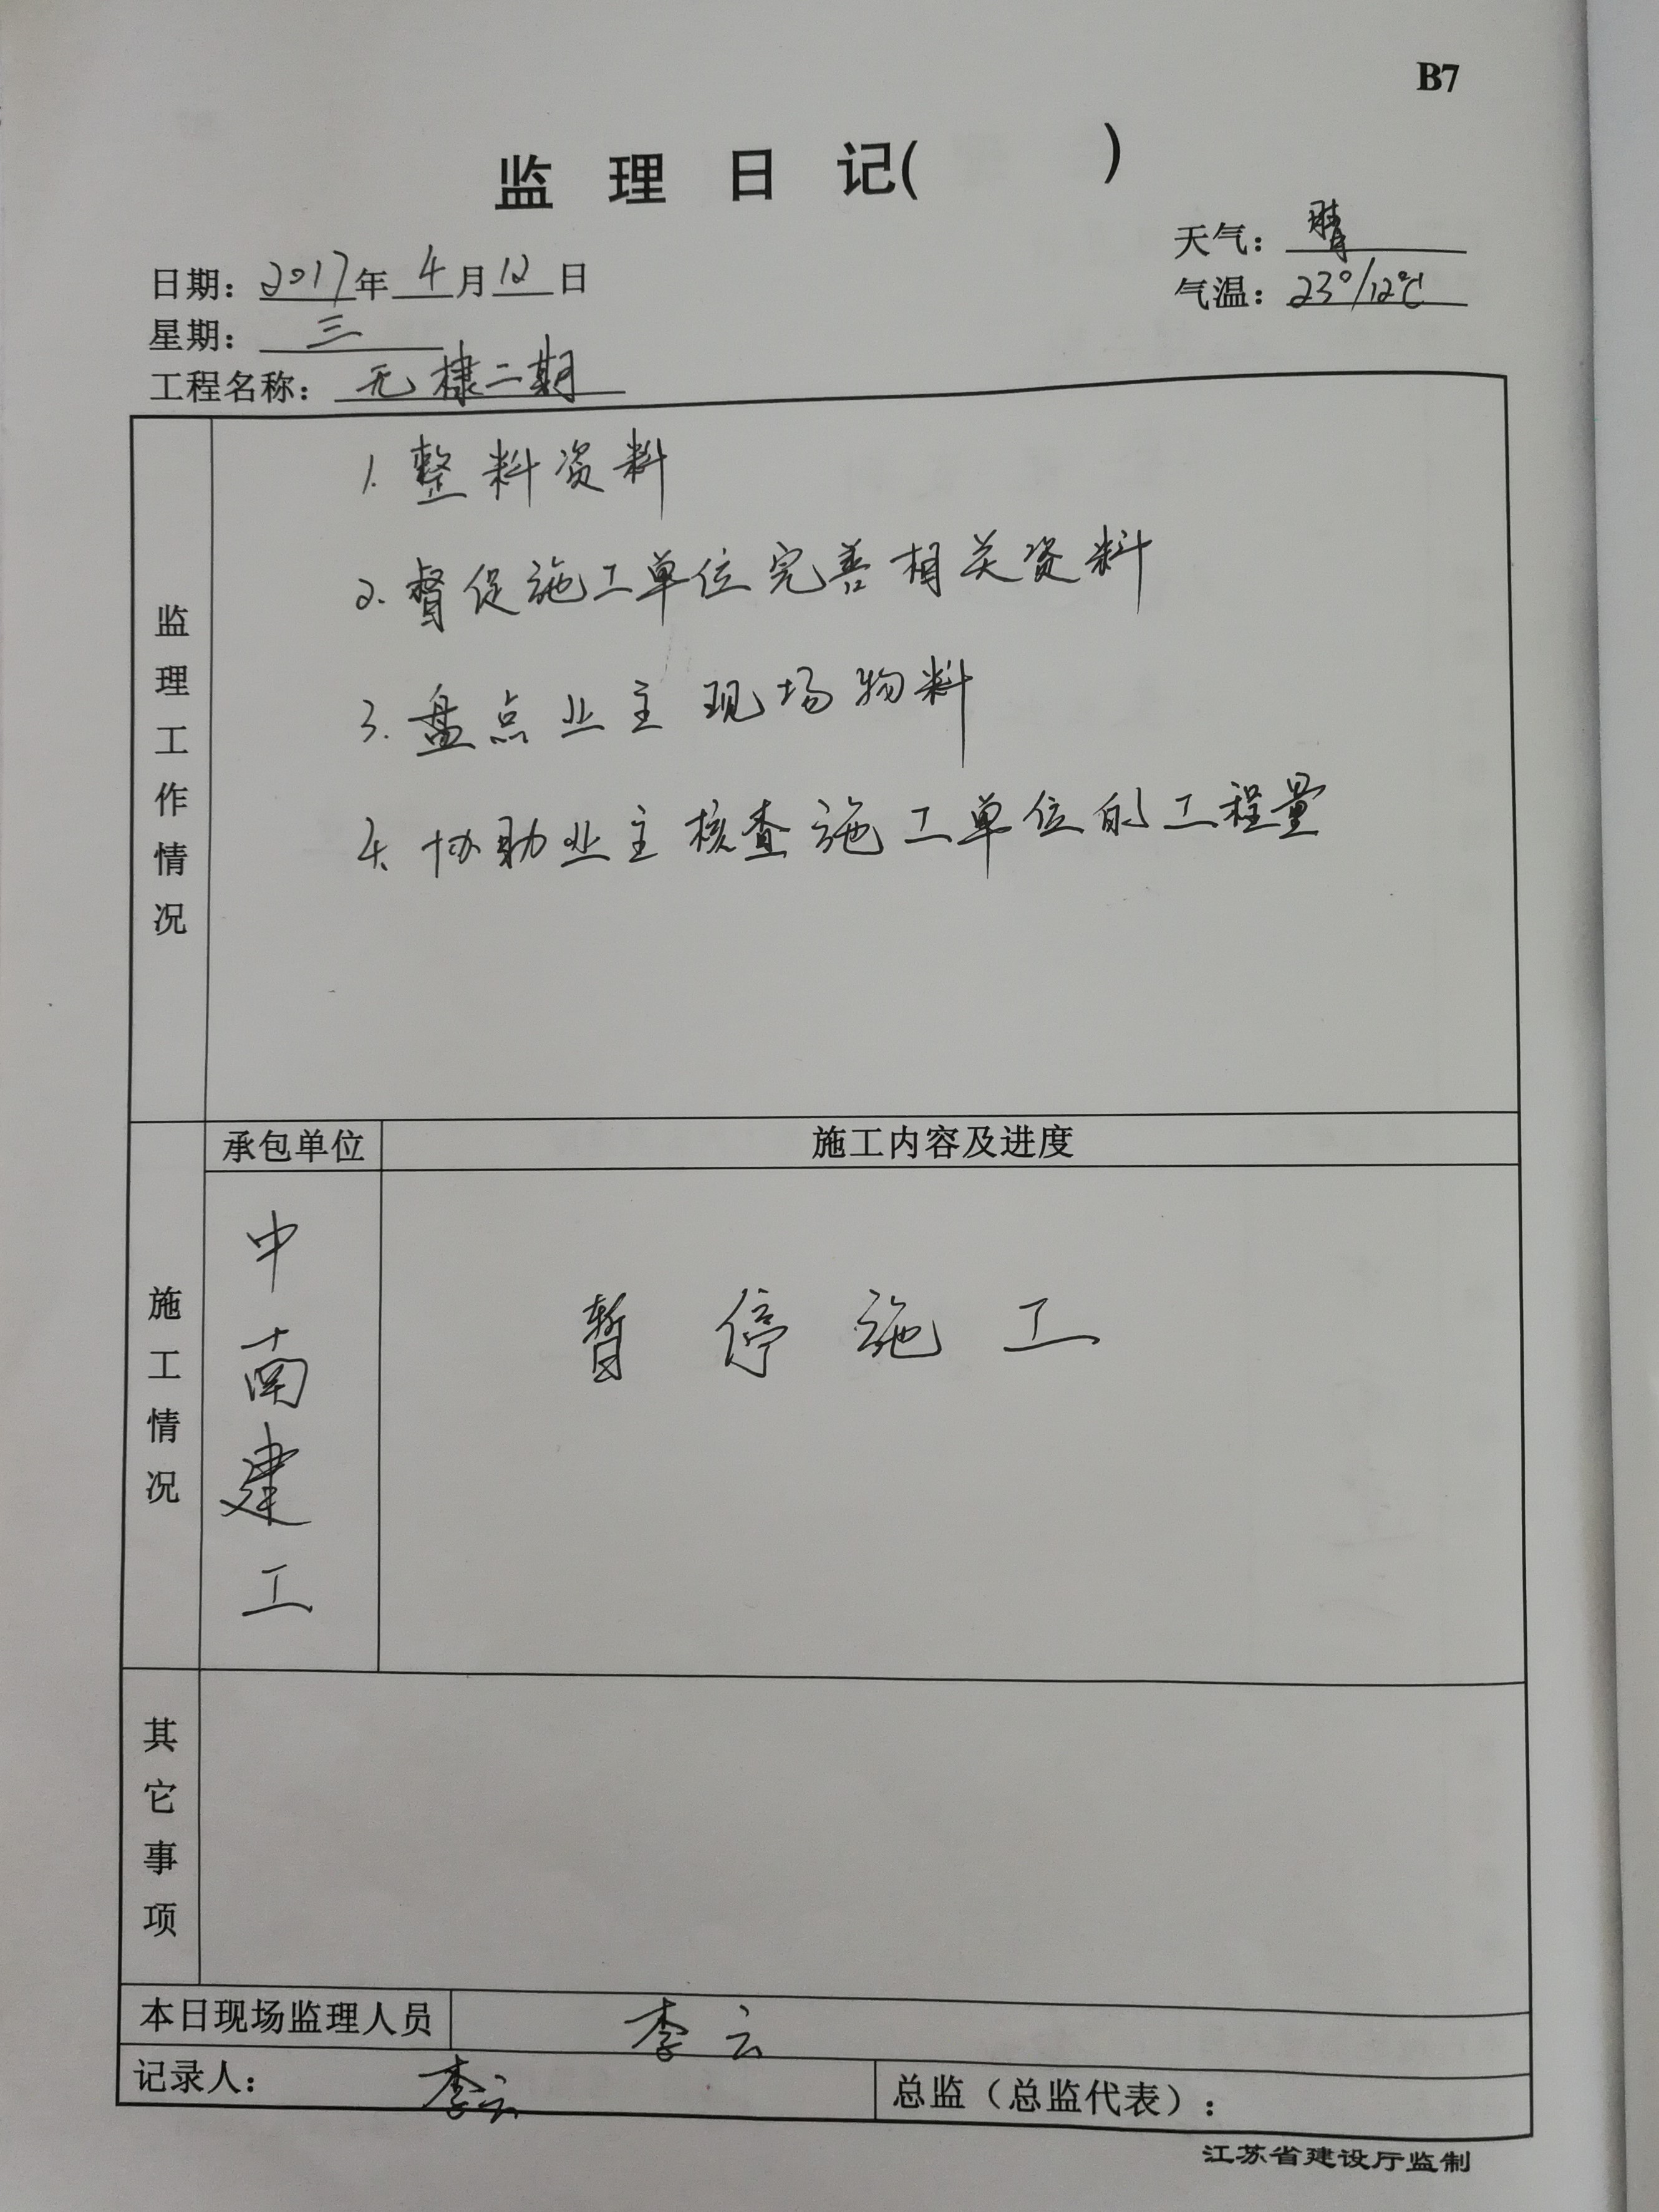 B7
监 理 日 记( )
天气：晴
日期：2017年4月12日
气温：23°/12℃
星期：三
工程名称：无棣二期
监理工作情况
1. 整料资料
2. 督促施工单位完善相关资料
3. 盘点业主现场物料
4. 协助业主核查施工单位的工程量
施工情况
承包单位
施工内容及进度
中南建工
暂停施工
其它事项
本日现场监理人员 李云
记录人：李云
总监（总监代表）：
江苏省建设厅监制